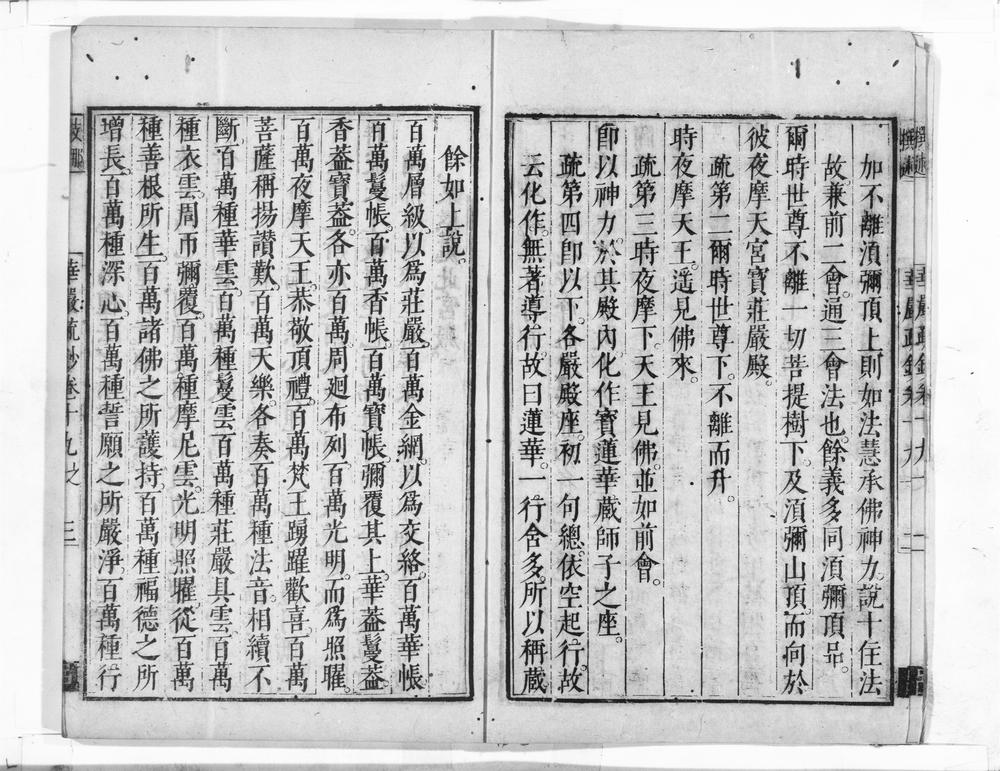 加不離湏彌頂上則如法慧承佛神力說十住法
故兼前二會通三會法也餘義多同湏彌頂品
爾時世尊不離一切菩提樹下及湏彌山頂而向於
彼夜摩天宮寶莊嚴殿
疏第二爾時世尊下不離而升
時夜摩天王遥見佛來
疏第三時夜摩下天王見佛並如前會
卽以神力於其殿內化作寶蓮華藏師子之座
疏第四卽以下各嚴殿座初一句總依空起行故
云化作無著導行故曰蓮華一行含多所以稱藏
餘如上說
百萬層級以爲莊嚴百萬金網以爲交絡百萬華帳
百萬鬘帳百萬香帳百萬寶帳彌覆其上華葢鬘葢
香葢寶葢各亦百萬周廻布列百萬光明而爲照曜
百萬夜摩天王恭敬頂禮百萬梵王踴躍歡喜百萬
菩薩稱揚讚歎百萬天樂各奏百萬種法音相續不
斷百萬種華雲百萬種鬘雲百萬種莊嚴具雲百萬
種衣雲周帀彌覆百萬種摩尼雲光明照曜從百萬
種善根所生百萬諸佛之所護持百萬種福德之所
增長百萬種深心百萬種誓願之所嚴淨百萬種行
華嚴疏鈔卷十九之 三